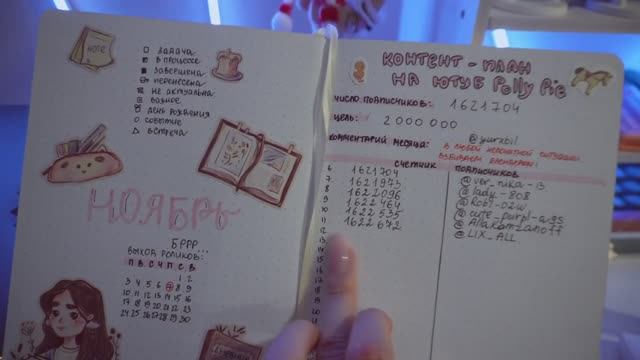 NOTE
ЗАДАЧА
В ПРОЦЕССЕ
ЗАВЕРШЕНА
ПЕРЕНЕСЕНА
НЕ АКТУАЛЬНА
ВАЖНОЕ
ДЕНЬ РОЖДЕНИЯ
СОБЫТИЕ
ВСТРЕЧА
НОЯБРЬ
БРРР
ВЫХОД РОЛИКОВ:
П В С Ч П С В
1 2
3 4 5 6 7 8 9
10 11 12 13 14 15 16
17 18 19 20 21 22 23
24 25 26 27 28 29 30
КОНТЕНТ - ПЛАН
НА ЮТУБ Polly Pie
ЧИСЛО ПОДПИСЧИКОВ: 1621704
ЦЕЛЬ: 2 000 000
КОММЕНТАРИЙ МЕСЯЦА:
В ЛЮБОЙ НЕПОНЯТНОЙ СИТУАЦИИ
СЧЕТЧИК ПОДПИСЧИКОВ
6 1621704
7 1621973 @lady_808
8 1622096
9 1622464
10 1622535
11 1622672 @LIX_ALL
12
13
14
15
16
17
18
19
20